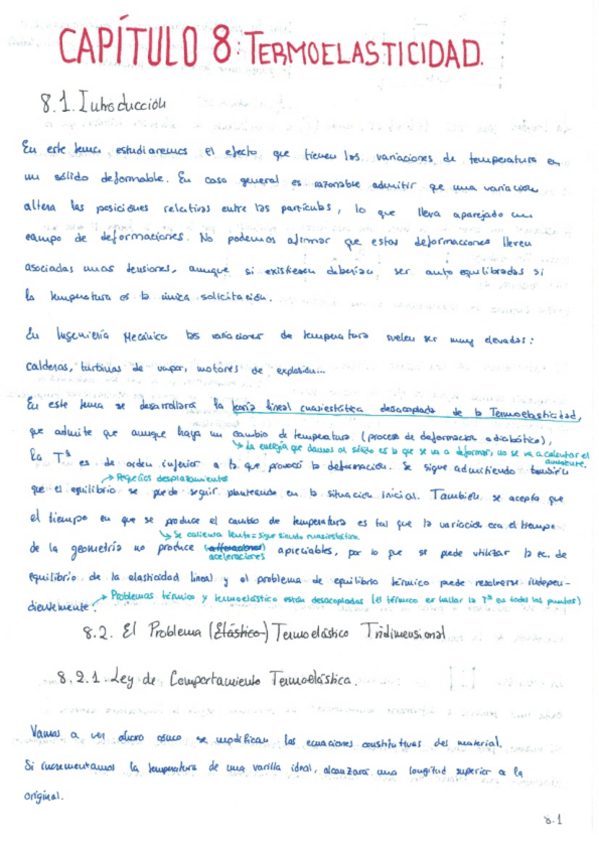 CAPÍTULO 8: TERMOELASTICIDAD.
8.1. Introducción
En este tema estudiaremos el efecto que tienen las variaciones de temperatura en
un sólido deformable. En caso general es razonable admitir que una variación
altera las posiciones relativas entre las partículas, lo que lleva aparejado un
campo de deformaciones. No podemos afirmar que estas deformaciones lleven
asociadas unas tensiones, aunque si existiesen deberían ser auto equilibradas si
la temperatura es la única solicitación.
En Ingeniería Mecánica las variaciones de temperatura suelen ser muy elevadas:
calderas, turbinas de vapor, motores de explosión...
En este tema se desarrollará la teoría lineal cuasiestática desacoplada de la Termoelasticidad,
que admite que aunque haya un cambio de temperatura (proceso de deformación adiabático),
↳ La energía que damos al sólido es la que se va a deformar, no se va a calentar el
la Tª es de orden inferior a la que provocó la deformación. Se sigue admitiendo también
↗ Pequeños desplazamientos
que el equilibrio se puede seguir planteando en la situación inicial. También se acepta que
el tiempo en que se produce el cambio de temperatura es tal que la variación con el tiempo
↳ Se calienta lento = sigue siendo cuasiestático.
de la geometría no produce aceleraciones apreciables, por lo que se puede utilizar la ec. de
equilibrio de la elasticidad lineal y el problema de equilibrio térmico puede resolverse indepen-
dientemente. ↗ Problemas térmico y termoelástico están desacoplados (el térmico es hallar la Tª en todos los puntos)
8.2. El Problema (Elástico) Termoelástico Tridimensional
8.2.1. Ley de Comportamiento Termoelástica.
Vamos a ver ahora cómo se modifican las ecuaciones constitutivas del material.
Si incrementamos la temperatura de una varilla ideal, alcanzará una longitud superior a la
original.
8.1